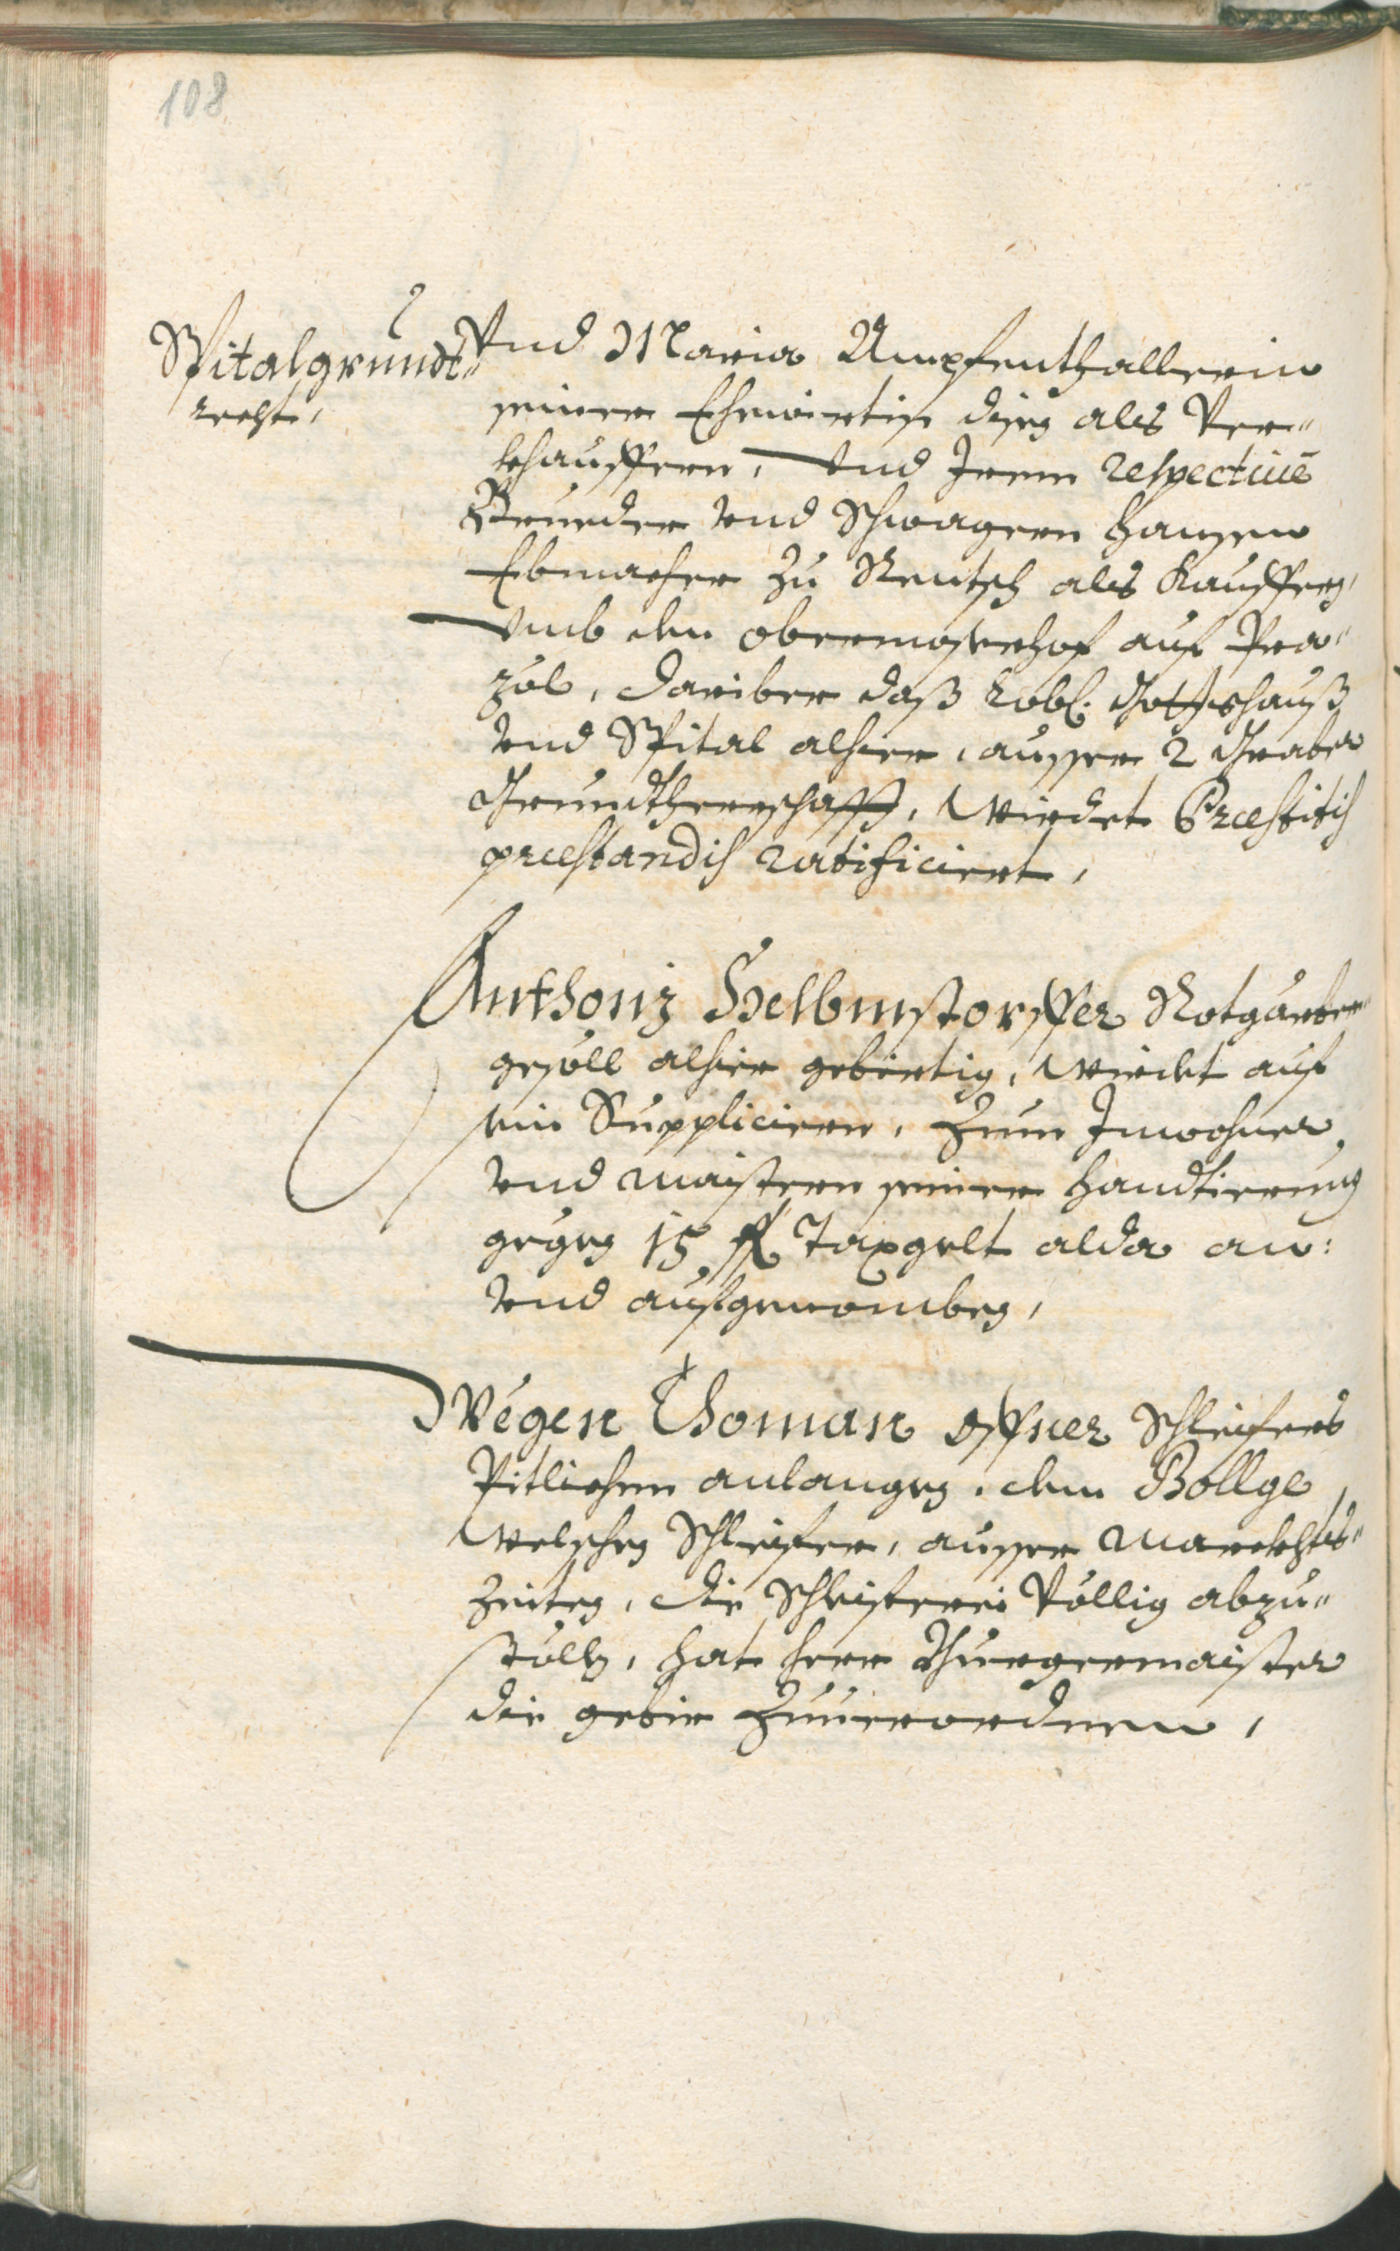 108
Spitalgrundt„
recht,
Vnd Maria Ampfenthallerin
seiner Ehewirtin dises als Ver„
khauffern, Vnd Irem respectiuè
Brueder vnd Schwagern Hansen
Ebmacher zu Rentsch als Kauffers,
Vmb den obermoserhof auf Pra„
zöl, dariber daß Lobl. Gottshauß
vnd Spital alhier, ausser 2 Graber
Grundtherrschafft, wirdet Præstitis
præstandis ratificiert,
Anthonj Helbmstorffer Rotgärber„
gesöll alhier gebirtig, wirdet auf
sein Supplicieren, Zum Inwohner
vnd maistern seiner Handtierung
gegen 15 fl Taxgelt alda an:
vnd aufgenomben,
Wegen Thoman Offner Schleifers
Pitlichen anlangen, dem Bollge
welschen Schleifer, ausser Marckhts„
zeiten, die Schleiferei Völlig abzu„
stölln, hat Herr Burgermaister
die gebir Zuuerordnen,